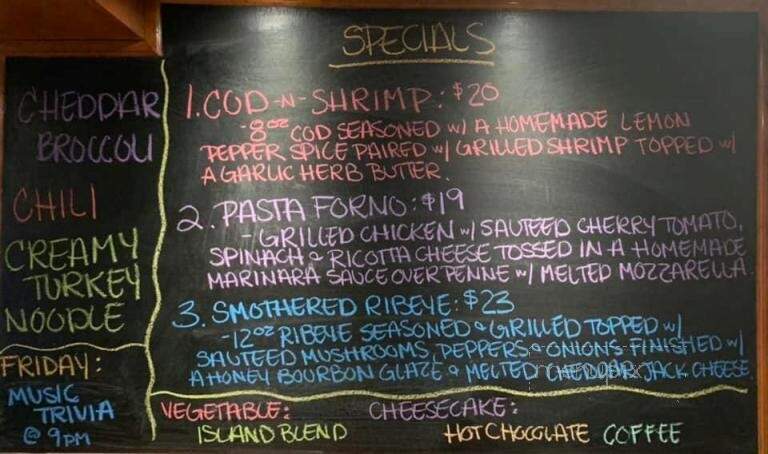 SPECIALS
CHEDDAR
BROCCOLI
CHILI
CREAMY
TURKEY
NOODLE
FRIDAY:
MUSIC
TRIVIA
@ 9PM
1. COD-N-SHRIMP: $20
-8oz COD SEASONED w/ A HOMEMADE LEMON
PEPPER SPICE PAIRED w/ GRILLED SHRIMP TOPPED w/
A GARLIC HERB BUTTER.
2. PASTA FORNO: $19
- GRILLED CHICKEN w/ SAUTEED CHERRY TOMATO,
SPINACH & RICOTTA CHEESE TOSSED IN A HOMEMADE
MARINARA SAUCE OVER PENNE w/ MELTED MOZZARELLA.
3. SMOTHERED RIBEYE: $23
-12oz RIBEYE SEASONED & GRILLED TOPPED w/
SAUTEED MUSHROOMS, PEPPERS & ONIONS FINISHED w/
A HONEY BOURBON GLAZE & MELTED CHEDDAR JACK CHEESE.
VEGETABLE:
ISLAND BLEND
CHEESECAKE:
HOT CHOCOLATE COFFEE